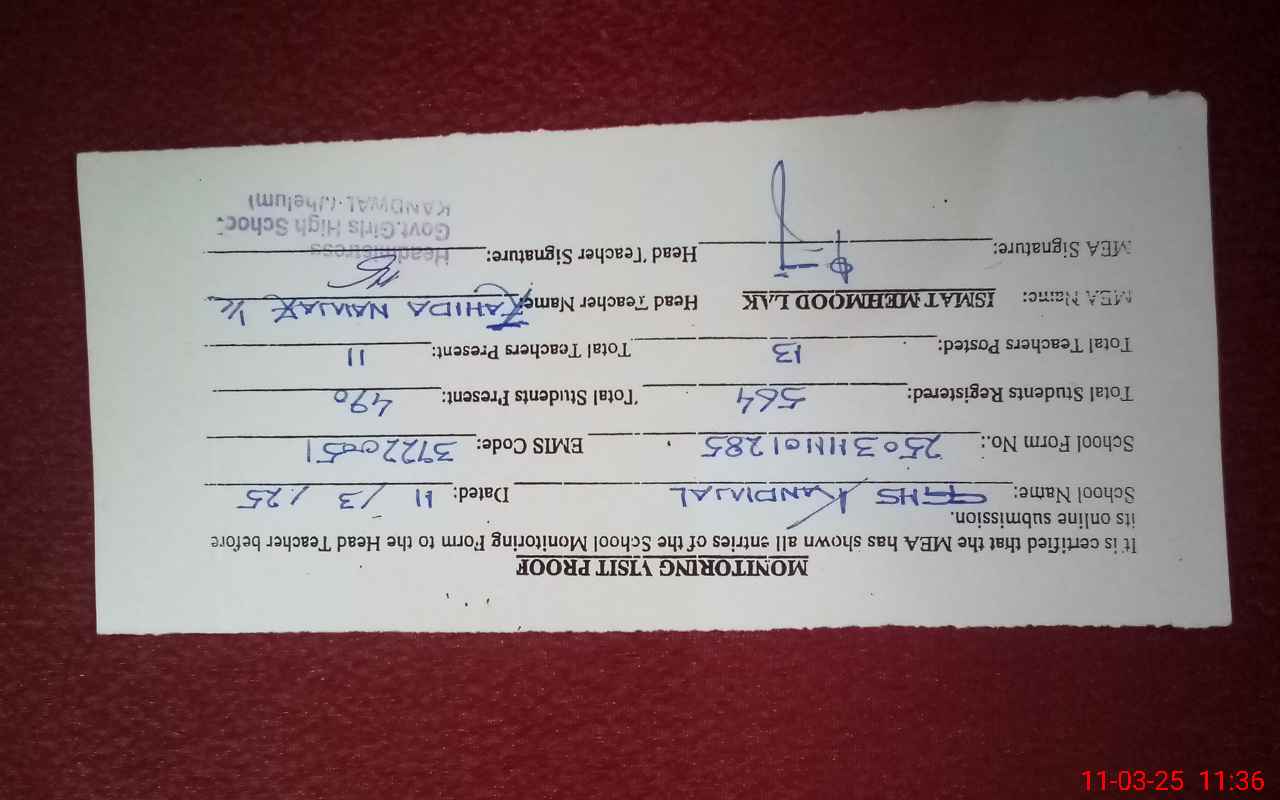 MONITORING VISIT PROOF
It is certified that the MEA has shown all entries of the School Monitoring Form to the Head Teacher before
its online submission.
School Name: GGHS KANDWAL Dated: 11 / 3 / 25
School Form No.: 25031111101285 EMIS Code: 37220051
Total Students Registered: 564 Total Students Present: 490
Total Teachers Posted: 13 Total Teachers Present: 11
MEA Name: ISMAT MEHMOOD LAK Head Teacher Name: ZAHIDA NAWAZ I/C
MEA Signature: Head Teacher Signature:
Headmistress
Govt.Girls High School
KANDWAL (Jhelum)
11-03-25 11:36